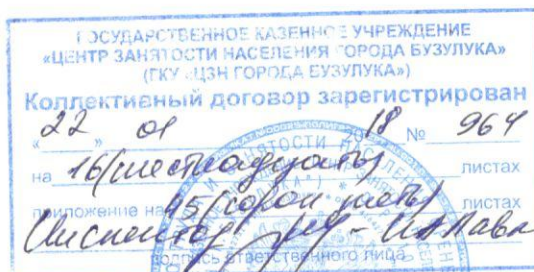 ГОСУДАРСТВЕННОЕ КАЗЕННОЕ УЧРЕЖДЕНИЕ
«ЦЕНТР ЗАНЯТОСТИ НАСЕЛЕНИЯ ГОРОДА БУЗУЛУКА»
(ГКУ «ЦЗН ГОРОДА БУЗУЛУКА»)
Коллективный договор зарегистрирован
«22» 01 2018 № 964
на 16 (шестнадцать) листах
приложение на 45 (сорок пять) листах
подпись ответственного лица